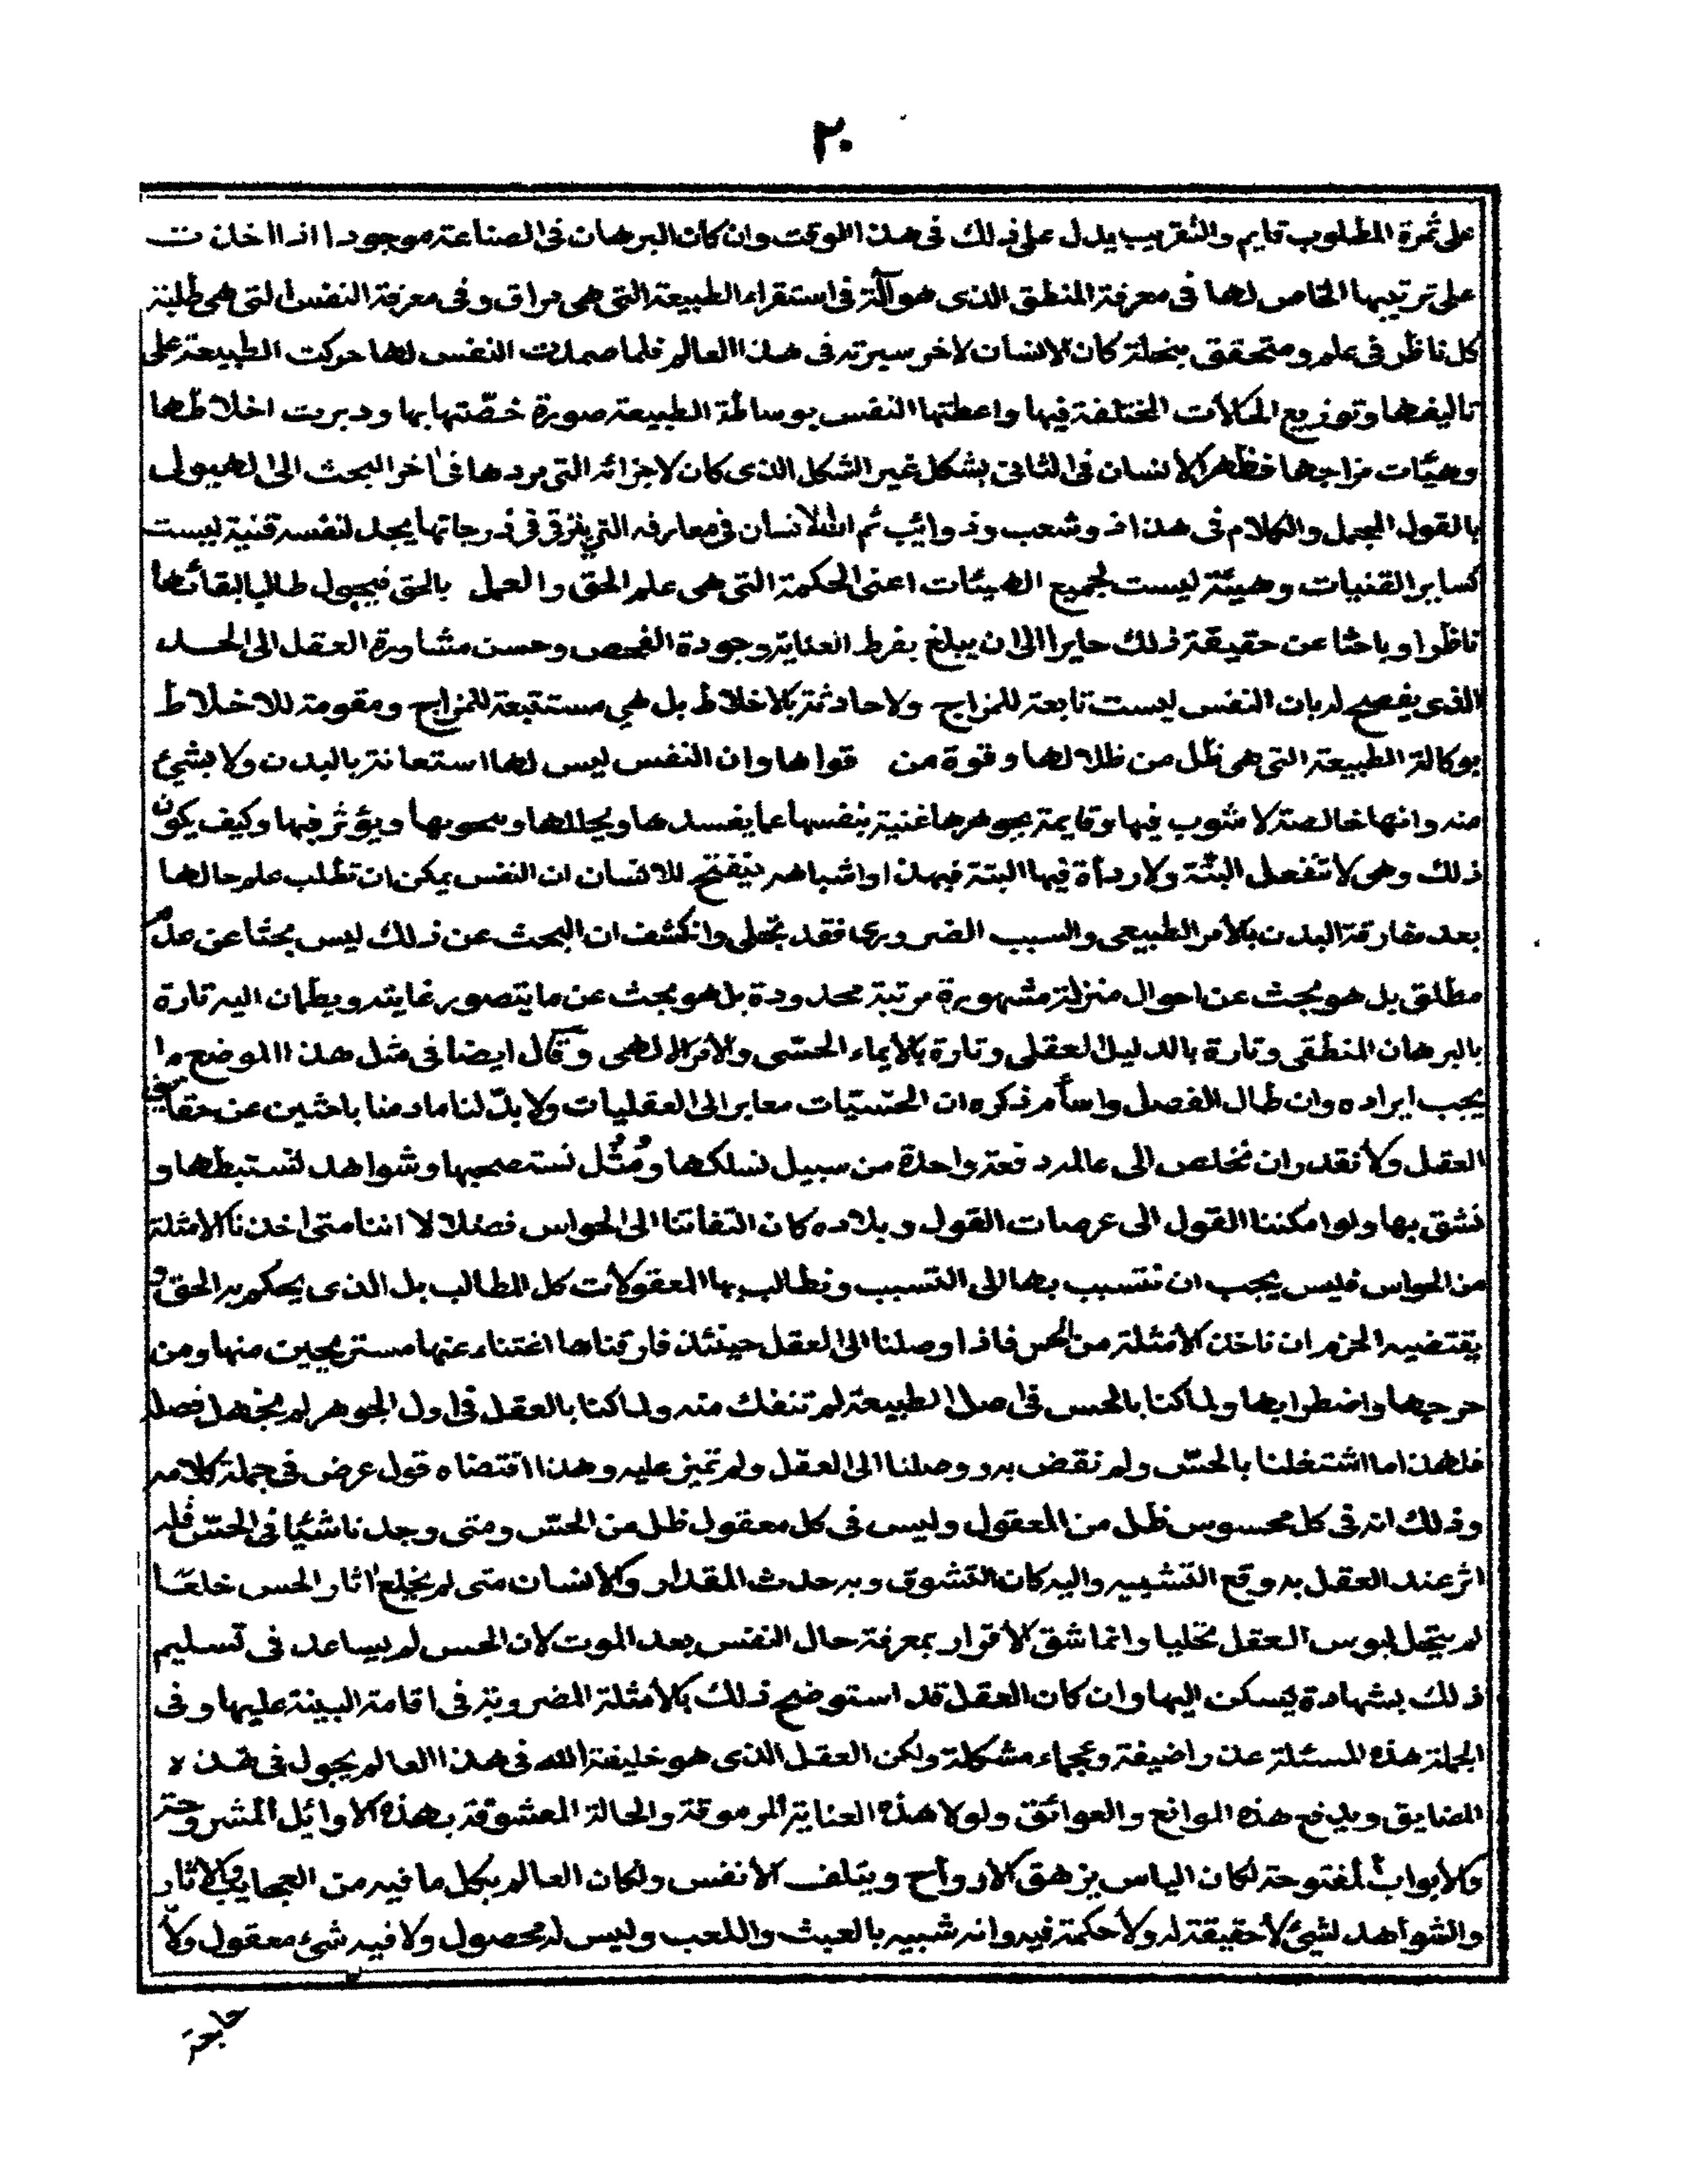 ٢٠
على ثمرة المطلوب قايم والتقريب يدل على ذلك فى هذا الوقت وان كان البرهان فى الصناعة موجودا اذا اخذت
على ترتيبها الخاص لها فى معرفة المنطق الذى هو آلة فى استقراء الطبيعة التى هى مراق وفى معرفة النفس التى هى طلبة
كل ناظر فى علم ومتحقق بنحلة كان الانسان لاخر سيرته فى هذا العالم فلما صمدت النفس لها حركت الطبيعة على
تاليفها وتوزيع الحالات المختلفة فيها واعطتها النفس بوساطة الطبيعة صورة خصّتها بها ودبرت اخلاطها
وهيّات مزاجها فظهر الانسان فى الثانى بشكل غير الشكل الذى كان لاجزائه التى بردها فى اخر البحث الى الهيولى
بالقول المجمل والكلام فى هذا ذو شعب وذوائب ثم ان الانسان فى معارفه التى يترقى فى درجاتها يجد لنفسه قنية ليست
كساير القنيات وهيئة ليست لجميع الهيئات اعنى الحكمة التى هى علم الحق والعمل بالحق فيجول طالبا لبقائها
ناظرا وباحثا عن حقيقة ذلك حايرا الى ان يبلغ بفرط العناية وجودة الفحص وحسن مشاورة العقل الى الحد
الذى يفصح له بان النفس ليست تابعة للمزاج ولا حادثة بالاخلاط بل هى مستتبعة للمزاج ومقومة للاخلاط
بوكالة الطبيعة التى هى ظل من ظلالها وقوة من قواها وان النفس ليس لها استعانة بالبدن ولا بشئ
منه وانها خالصة لا شوب فيها وقايمة بجوهرها غنية بنفسها عما يفسدها ويحللها ويؤثر فيها وكيف يكون
ذلك وهى لا تنفعل البتّة ولا رداة فيها البتة فبهذا واشباهه يتفتح للانسان ان النفس يمكن ان تطلب علم حالها
بعد مفارقة البدن بالامر الطبيعى والسبب الضرورى فقد تجلى وانكشف ان البحث عن ذلك ليس بحثا عن عدم
مطلق بل هو بحث عن احوال منزلة مشهورة مرتبة محدودة بل هو بحث عن ما يتصور غايته ويطمان اليه تارة
بالبرهان المنطقى وتارة بالدليل العقلى وتارة بالايماء الحسّى والامر الالهى وقال ايضا فى مثل هذا الموضع ما
يجب ايراده وان طال الفصل واسأم ذكره ان الحسّيّات معابر الى العقليات ولا بدّ لنا مادمنا باحثين عن حقايق
العقل ولا نقدر ان نخلص الى عالمه دفعة واحدة من سبيل نسلكها ومُثُل نستصحبها وشواهد نستنبطها و
نشق بها ولو امكننا القول الى عرصات القول وبلاده كان التفاتنا الى الحواس فضلا لا اننا متى اخذنا الامثلة
من الحواس فليس يجب ان نتسبب بها الى التسبب ونطالب بها المعقولات كل المطالب بل الذى يحكم به الحق و
يقتضيه الحزم ان ناخذ الامثلة من الحس فاذا وصلنا الى العقل حينئذ فارقناها اغتناء عنها مستريحين منها ومن
حرجها واضطرابها ولما كنا بالحس فى اصل الطبيعة لم تنفك منه ولما كنا بالعقل فى اول الجوهر لم يجهل فصله
فلهذا ما اشتغلنا بالحسّ ولم نقض به ووصلنا الى العقل ولم نتميز عليه وهذا اقتضاه قول عرض فى جملة كلامه
وذلك انه فى كل محسوس ظل من المعقول وليس فى كل معقول ظل من الحسّ ومتى وجدنا شيئا فى الحسّ فله
اثر عند العقل به وقع التشبيه واليه كان التشوق وبه حدث المقدار والانسان متى لم يخلع اثار الحس خلعا
لم يتحل لبوس العقل تحليا وانما شق الاقرار بمعرفة حال النفس بعد الموت لان الحس لم يساعد فى تسليم
ذلك بشهادة يسكن اليها وان كان العقل قد استوضح ذلك بالامثلة المضروبة فى اقامة البينة عليها وفى
الجملة هذه المسئلة عذراضيفة وعجماء مشكلة ولكن العقل الذى هو خليفة الله فى هذا العالم يجول فى هذه
المضايق ويدفع هذه الموانع والعوائق ولولا هذه العناية المرموقة والحالة المعشوقة بهذه الاوائل المشروحة
والابواب المفتوحة لكان الياس يزهق الارواح ويتلف الانفس ولكان العالم بكل ما فيه من العجايب والاثار
والشواهد لشئ لا حقيقة له ولا حكمة فيه وانه شبيه بالعبث واللعب وليس له محصول ولا فيه شئ معقول ولا